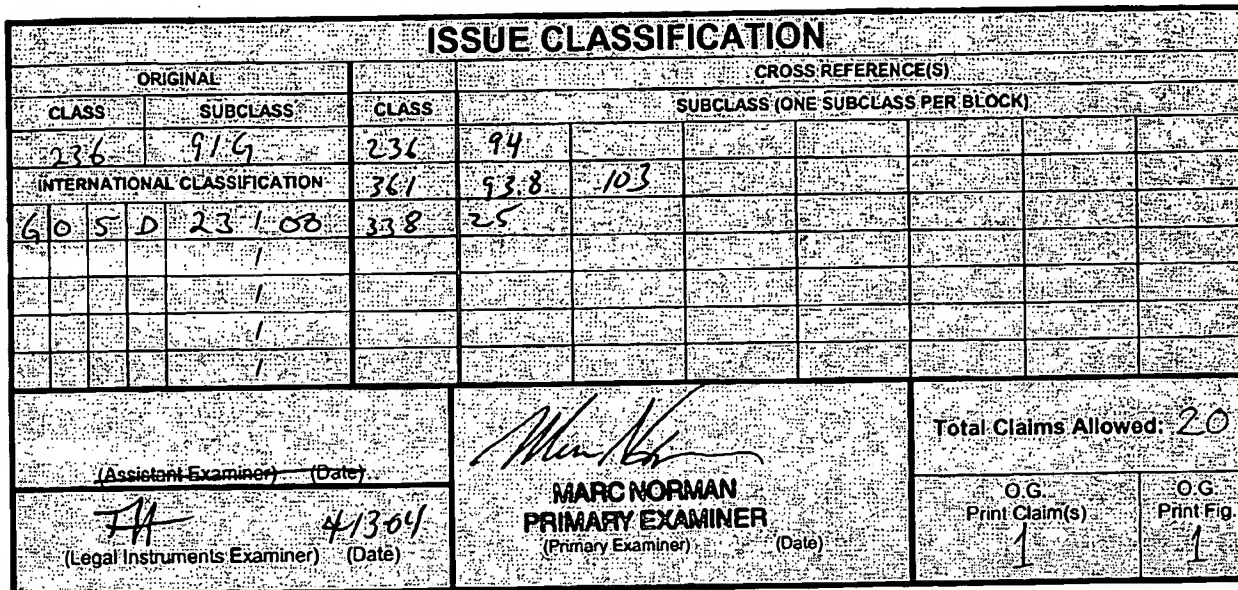 ISSUE CLASSIFICATION
ORIGINAL CROSS REFERENCE(S)
CLASS SUBCLASS CLASS SUBCLASS (ONE SUBCLASS PER BLOCK)
236 91G 236 94
INTERNATIONAL CLASSIFICATION 361 93.8 103
G 0 5 D 23 / 00 338 25
/
/
/
/
Total Claims Allowed: 20
(Assistant Examiner) (Date)
MARC NORMAN
PRIMARY EXAMINER
(Primary Examiner) (Date)
4/13/04
(Legal Instruments Examiner) (Date)
O.G. Print Claim(s) 1
O.G. Print Fig. 1